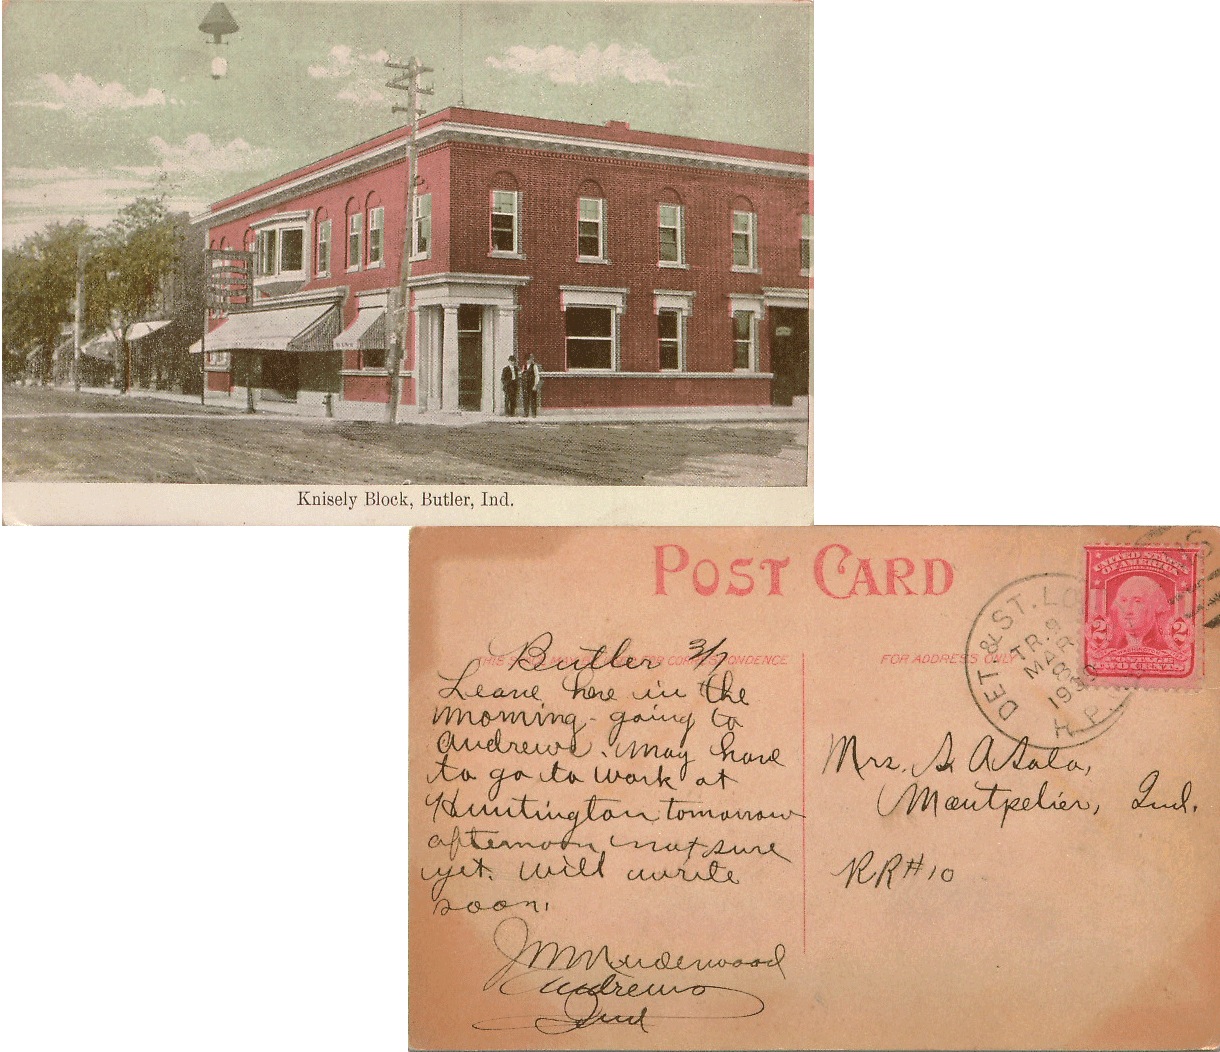 Knisely Block, Butler, Ind.
POST CARD
THIS SPACE MAY BE USED FOR CORRESPONDENCE
FOR ADDRESS ONLY
Butler 3/7
Leave here in the
morning - going to
Andrews. may have
to go to work at
Huntington tomorrow
afternoon, not sure
yet. Will write
soon.
J M Underwood
Andrews
Ind
DET. & ST. LO
TR. 9
MAR
8
R.P.
UNITED STATES
OF AMERICA
2 2
POSTAGE
TWO CENTS
Mrs. S. A.
Montpelier, Ind.
RR#10